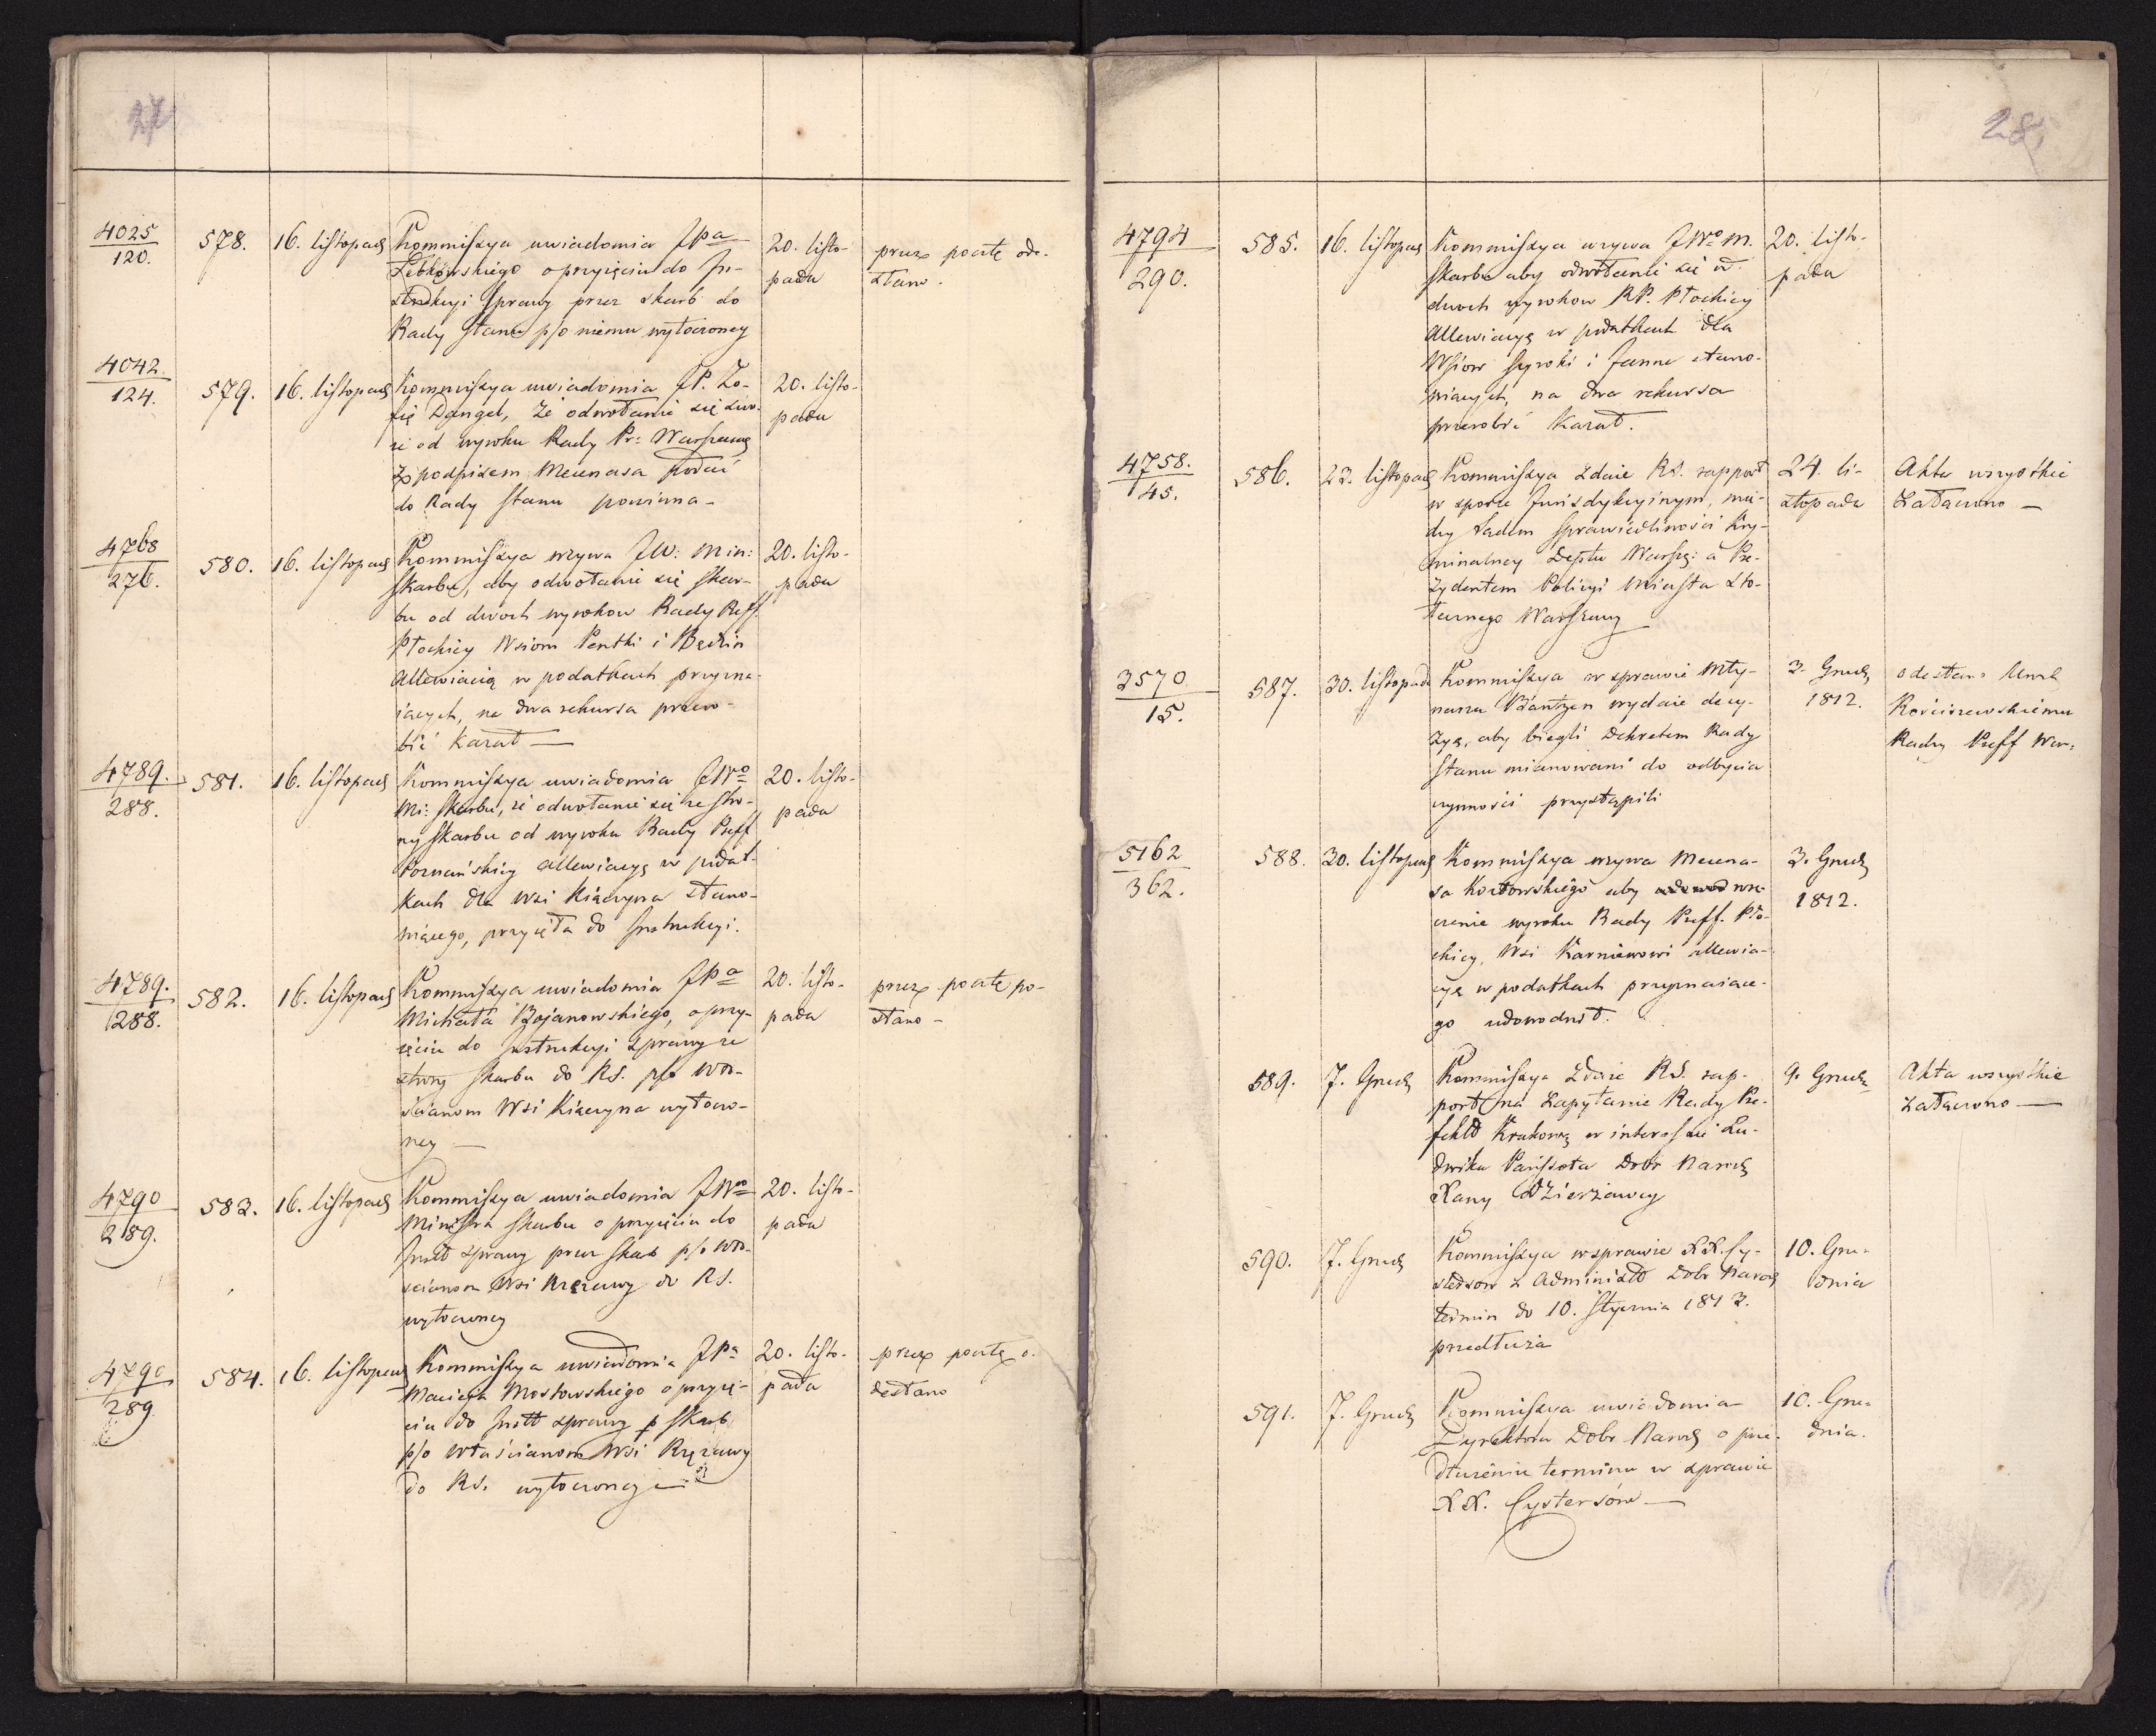 27
4025
120.
578.
16. listopad
Kommissya uwiadomia JPa
Łebkowskiego o przyięciu do In-
strukcyi sprawy przez skarb do
Rady Stanu p/o niemu wytoczoney
20. listo-
pada
przez pocztę ode-
słano.
4042
124.
579.
16. listopad
Kommissya uwiadomia JP. Zo-
fię Dangel, że odwołanie się swo-
ie od wyroku Rady Pr: Warszaws
z podpisem Mecenasa podać
do Rady Stanu powinna -
20. listo-
pada
4768
276.
580.
16. listopad
Kommissya wzywa JW: Min:
Skarbu, aby odwołanie się skar-
bu od dwoch wyrokow Rady Preff
Płockiey Wsiom Pentki i Będzin
Allewiacią w podatkach przyzna-
iących, na dwa rekursa przero-
bić kazał —
20. listo-
pada
4789.
288.
581.
16. listopad
Kommissya uwiadomia JWo
Mi: Skarbu, iż odwołanie się ze stro-
ny Skarbu od wyroku Rady Preff
Poznańskiey allewiacyę w podat-
kach dla wsi Kiączyna stano-
wiącego, przyięła do Instrukcyi.
20. listo-
pada
4789.
288.
582.
16. listopad
Kommissya uwiadomia JPa
Michała Bojanowskiego, o przy-
ięciu do Instrukcyi sprawy ze
strony Skarbu do RS. p/o Wło-
ścianom Wsi Kiączyna wytoczo-
ney —
20. listo-
pada
przez pocztę po-
słano -
4790
289.
583.
16. listopad
Kommissya uwiadomia JWo
Ministra Skarbu o przyięciu do
Instr sprawy przez Skarb p/o Wło-
scianom Wsi Krężawy do RS.
wytoczoney
20. listo-
pada
4790
289
584.
16. listopad
Kommissya uwiadomia JPa
Macieja Mostowskiego o przyię-
ciu do Instr sprawy p Skarb
p/o Właścianom Wsi Krężawy
do RS. wytoczoney —
20. listo-
pada
przez pocztę o-
desłano
28
4794
290.
585.
16. listopad
Kommissya wzywa JWo M.
Skarbu aby odwołanie się od
dwoch wyrokow RP. Płockiey
Allewiacyę w podatkach dla
Wsiow Syroki i Janne stano-
wiących, na dwa rekursa
przerobić kazał.
20. listo-
pada
4758.
45.
586.
23. listopad
Kommissya zdaie RS. rapport
w sporze Jurisdykcyinym, mię-
dzy Sadem Sprawiedliwości Kry-
minalney Deptu Warsz: a Pre-
zydentem Policyi Miasta Sto-
łecznego Warszawy
24. li-
stopada
Akta wszystkie
załączono —
3570
15.
587.
30. listopada
Kommissya w sprawie Mły-
narza Bantzen wydaie decy-
zyą, aby biegli Dekretem Rady
Stanu mianowani do odbycia
czynności przystąpili
3. Grud
1812.
odesłano
Kościszewskiemu
Rady Preff War:
5162
362.
588.
30. listopad
Kommissya wzywa Mecena-
sa Kozłowskiego aby wrę-
czenie wyroku Rady Preff. Pło-
ckiey, Wsi Karniewowi allewia-
cyą w podatkach przyznaiące-
go udowodnił.
3. Grud
1812.
589.
7. Grud
Kommissya zdaie RS. rap-
port na zapytanie Rady Pre-
fekt Krakows w interessie Lu-
dwika Parissota Dobr Narod
Xany Dzierżawcy
9. Grud
Akta wszystkie
załączono —
590.
7. Grud
Kommissya w sprawie XX. Cy-
stersow z Administ Dobr Narod
termin do 10. Stycznia 1813.
przedłuża
10. Gru-
dnia
591.
7. Grud
Kommissya uwiadomia
Dyrektora Dobr Narod o prze-
dłużeniu terminu w sprawie
XX. Cystersów —
10. Gru-
dnia.